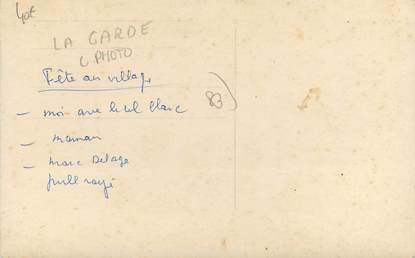 40€
LA GARDE
C PHOTO
Fête au village
83
- moi avec le col blanc
- maman
- Marc Delage
pull rayé